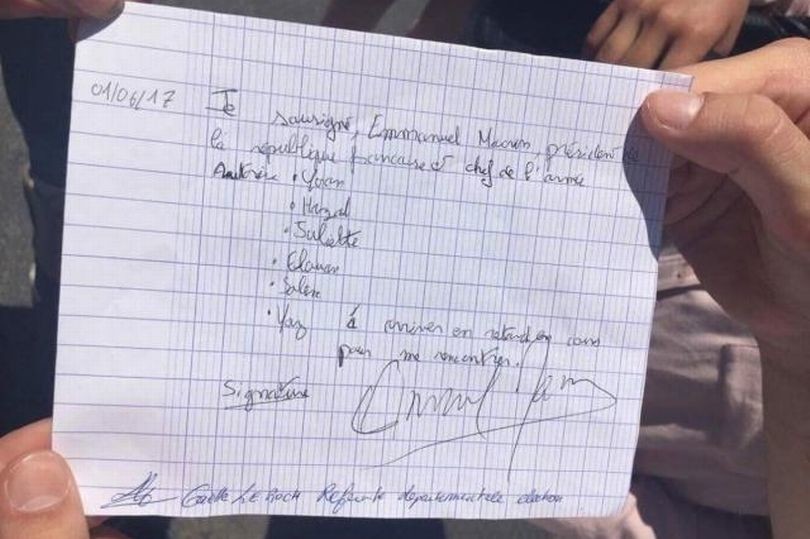 01/06/17 Je sousigné, Emmanuel Macron, président de
la république francaise et chef de l'armée
Autorise • Yoan
• Hizal
• Juliette
• Elouan
• Salomé
• Yaz à arriver en retard en cours
pour me rencontrer.
Signature
Gaëlle LE ROCH Référente départementale election